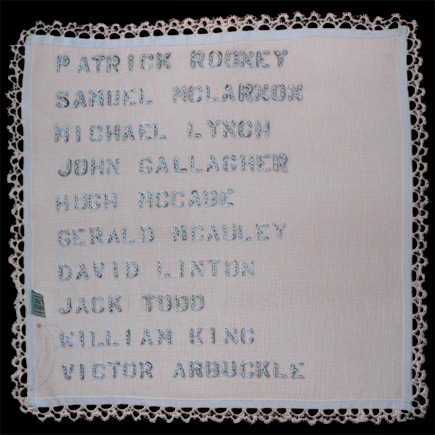 PATRICK ROONEY
SAMUEL MCLARNON
MICHAEL LYNCH
JOHN GALLAGHER
HUGH MCCABE
GERALD MCAULEY
DAVID LINTON
JACK TODD
WILLIAM KING
VICTOR ARBUCKLE